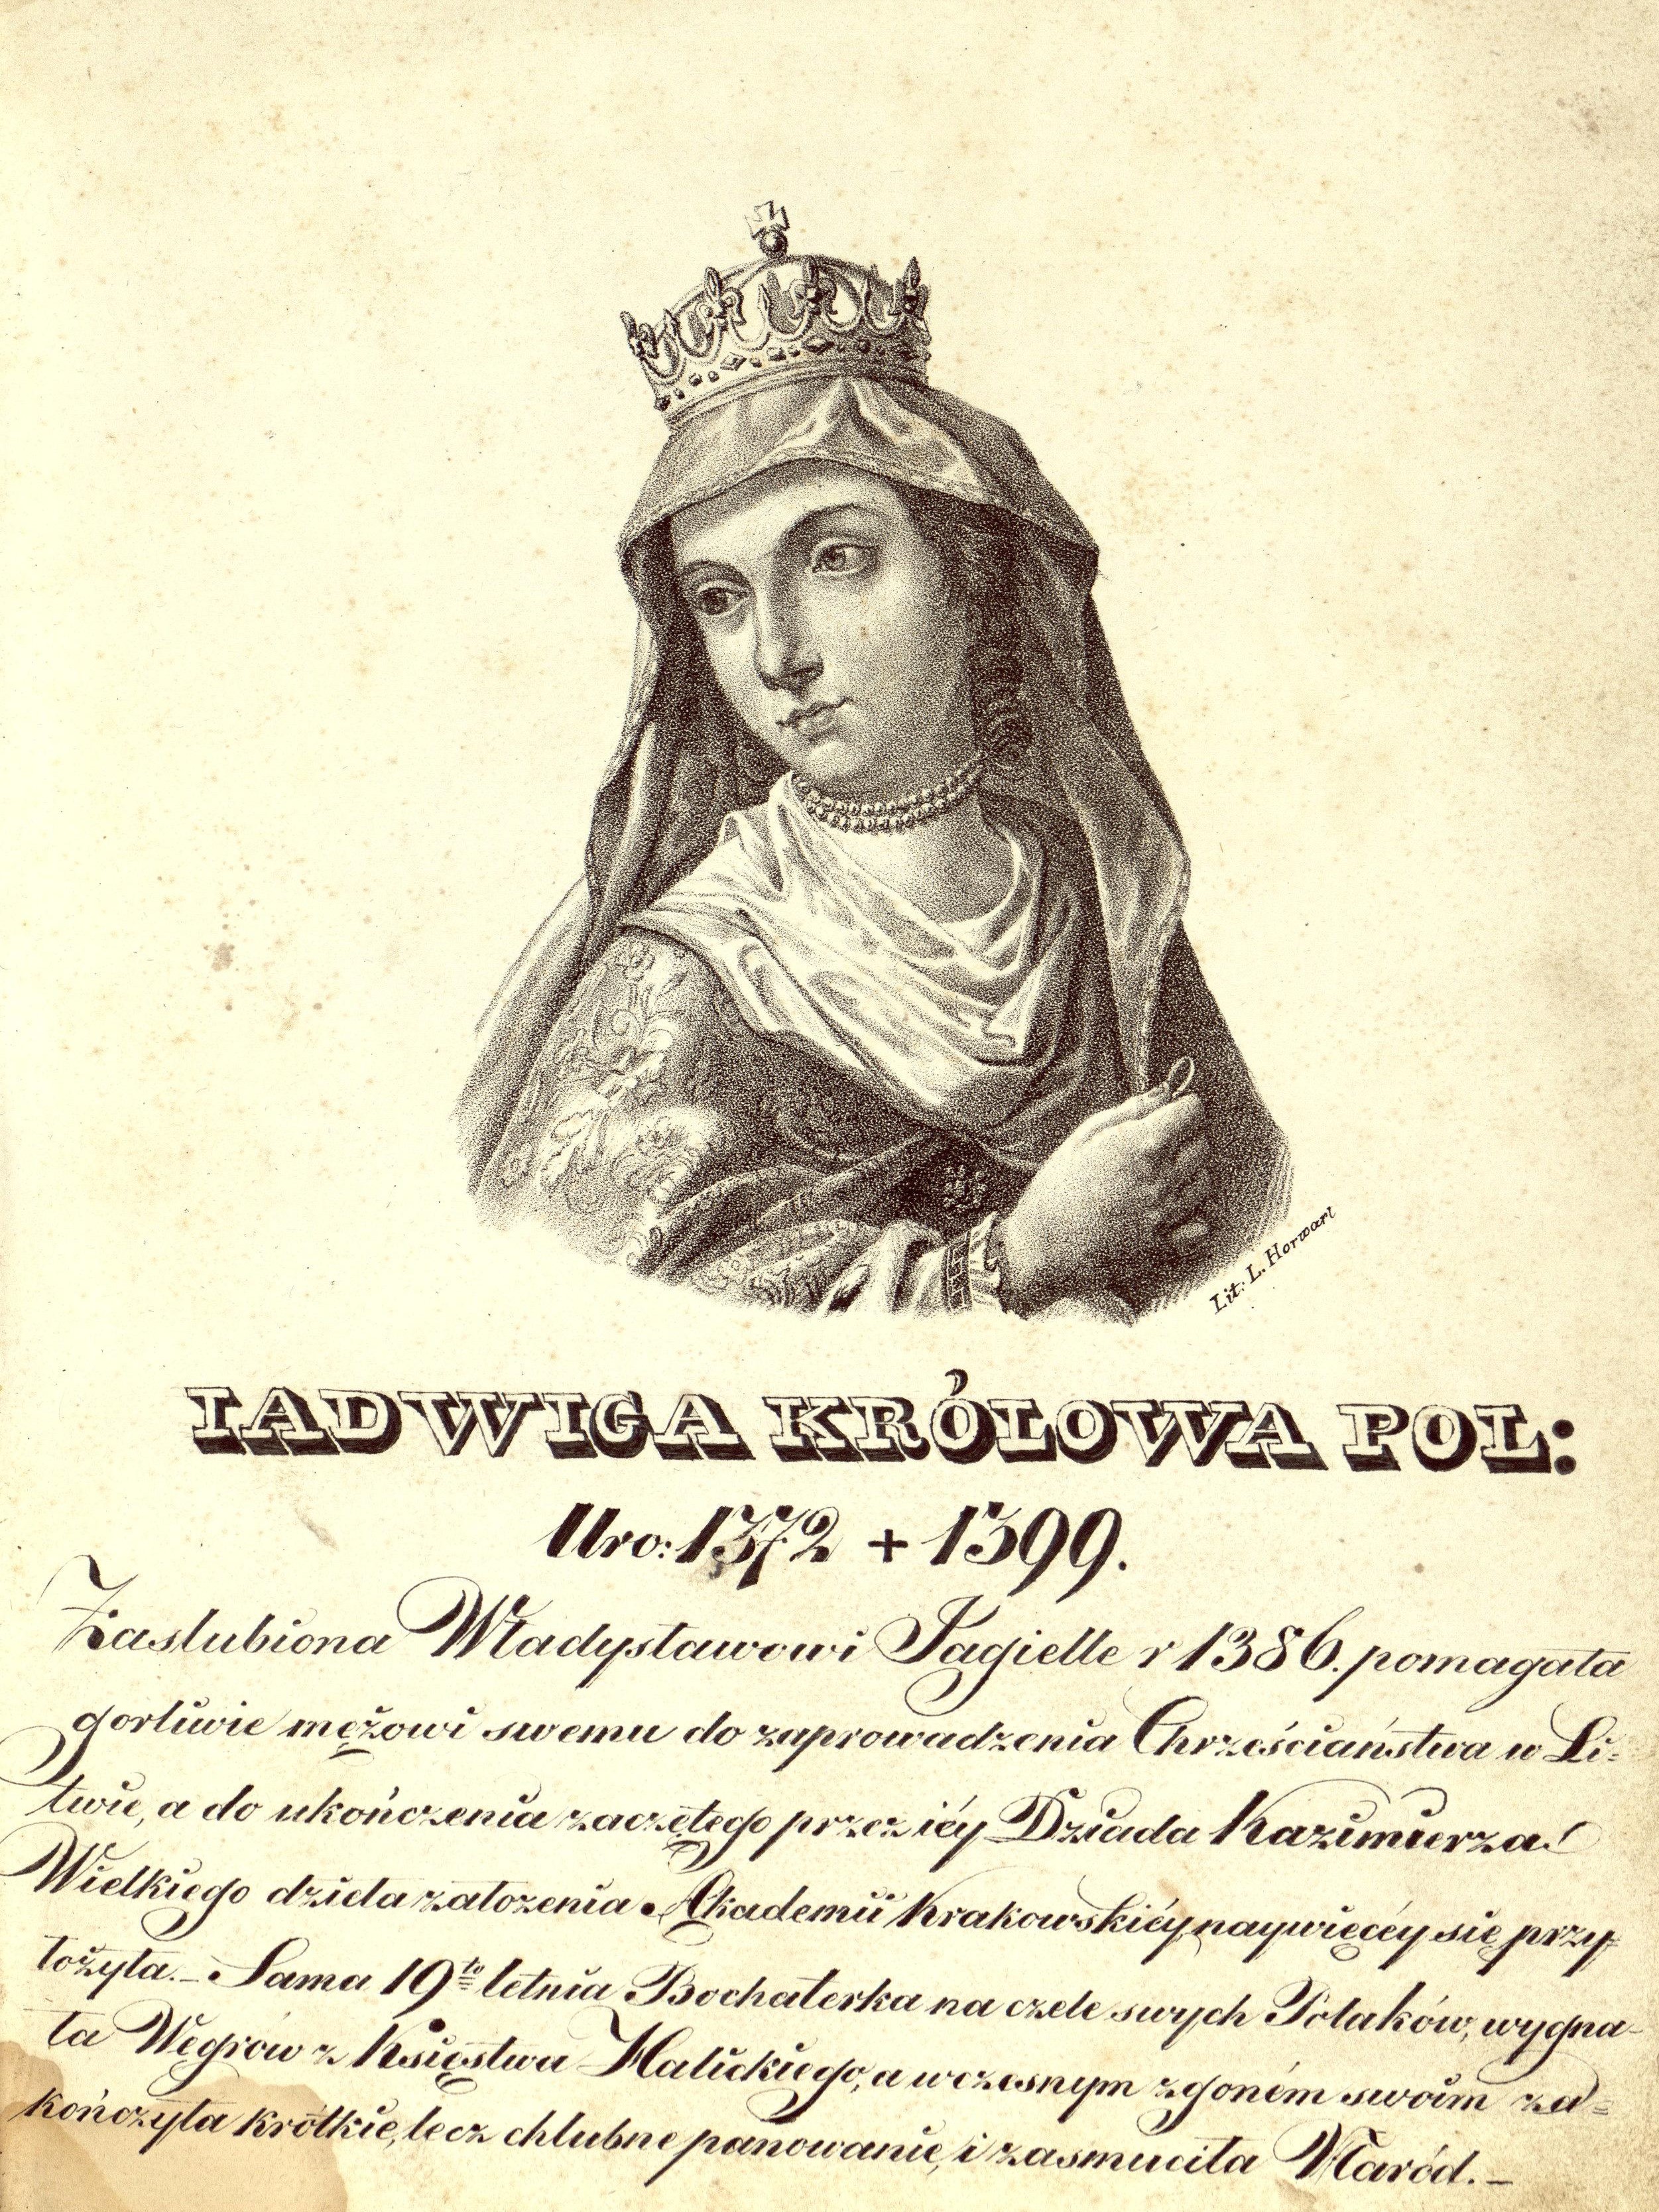 Lit: L. Horwart
IADWIGA KRÓLOWA POL:
Uro: 1372 + 1399.
Zaslubiona Władysławowi Jagielle r 1386. pomagała
gorliwie mężowi swemu do zaprowadzenia Chrześciaństwa w Li=
twie, a do ukończenia zaczętego przez iéy Dziada Kazimierza
Wielkiego dzieła założenia Akademii Krakowskiéy naywięcéy się przy
łożyła.– Sama 19to letnia Bochaterka na czele swych Polaków, wygna-
ła Węgrów z Księstwa Halickiego, a wczesnym zgoném swoim za=
kończyła krótkie, lecz chlubne panowanie, i zasmuciła Naród.–